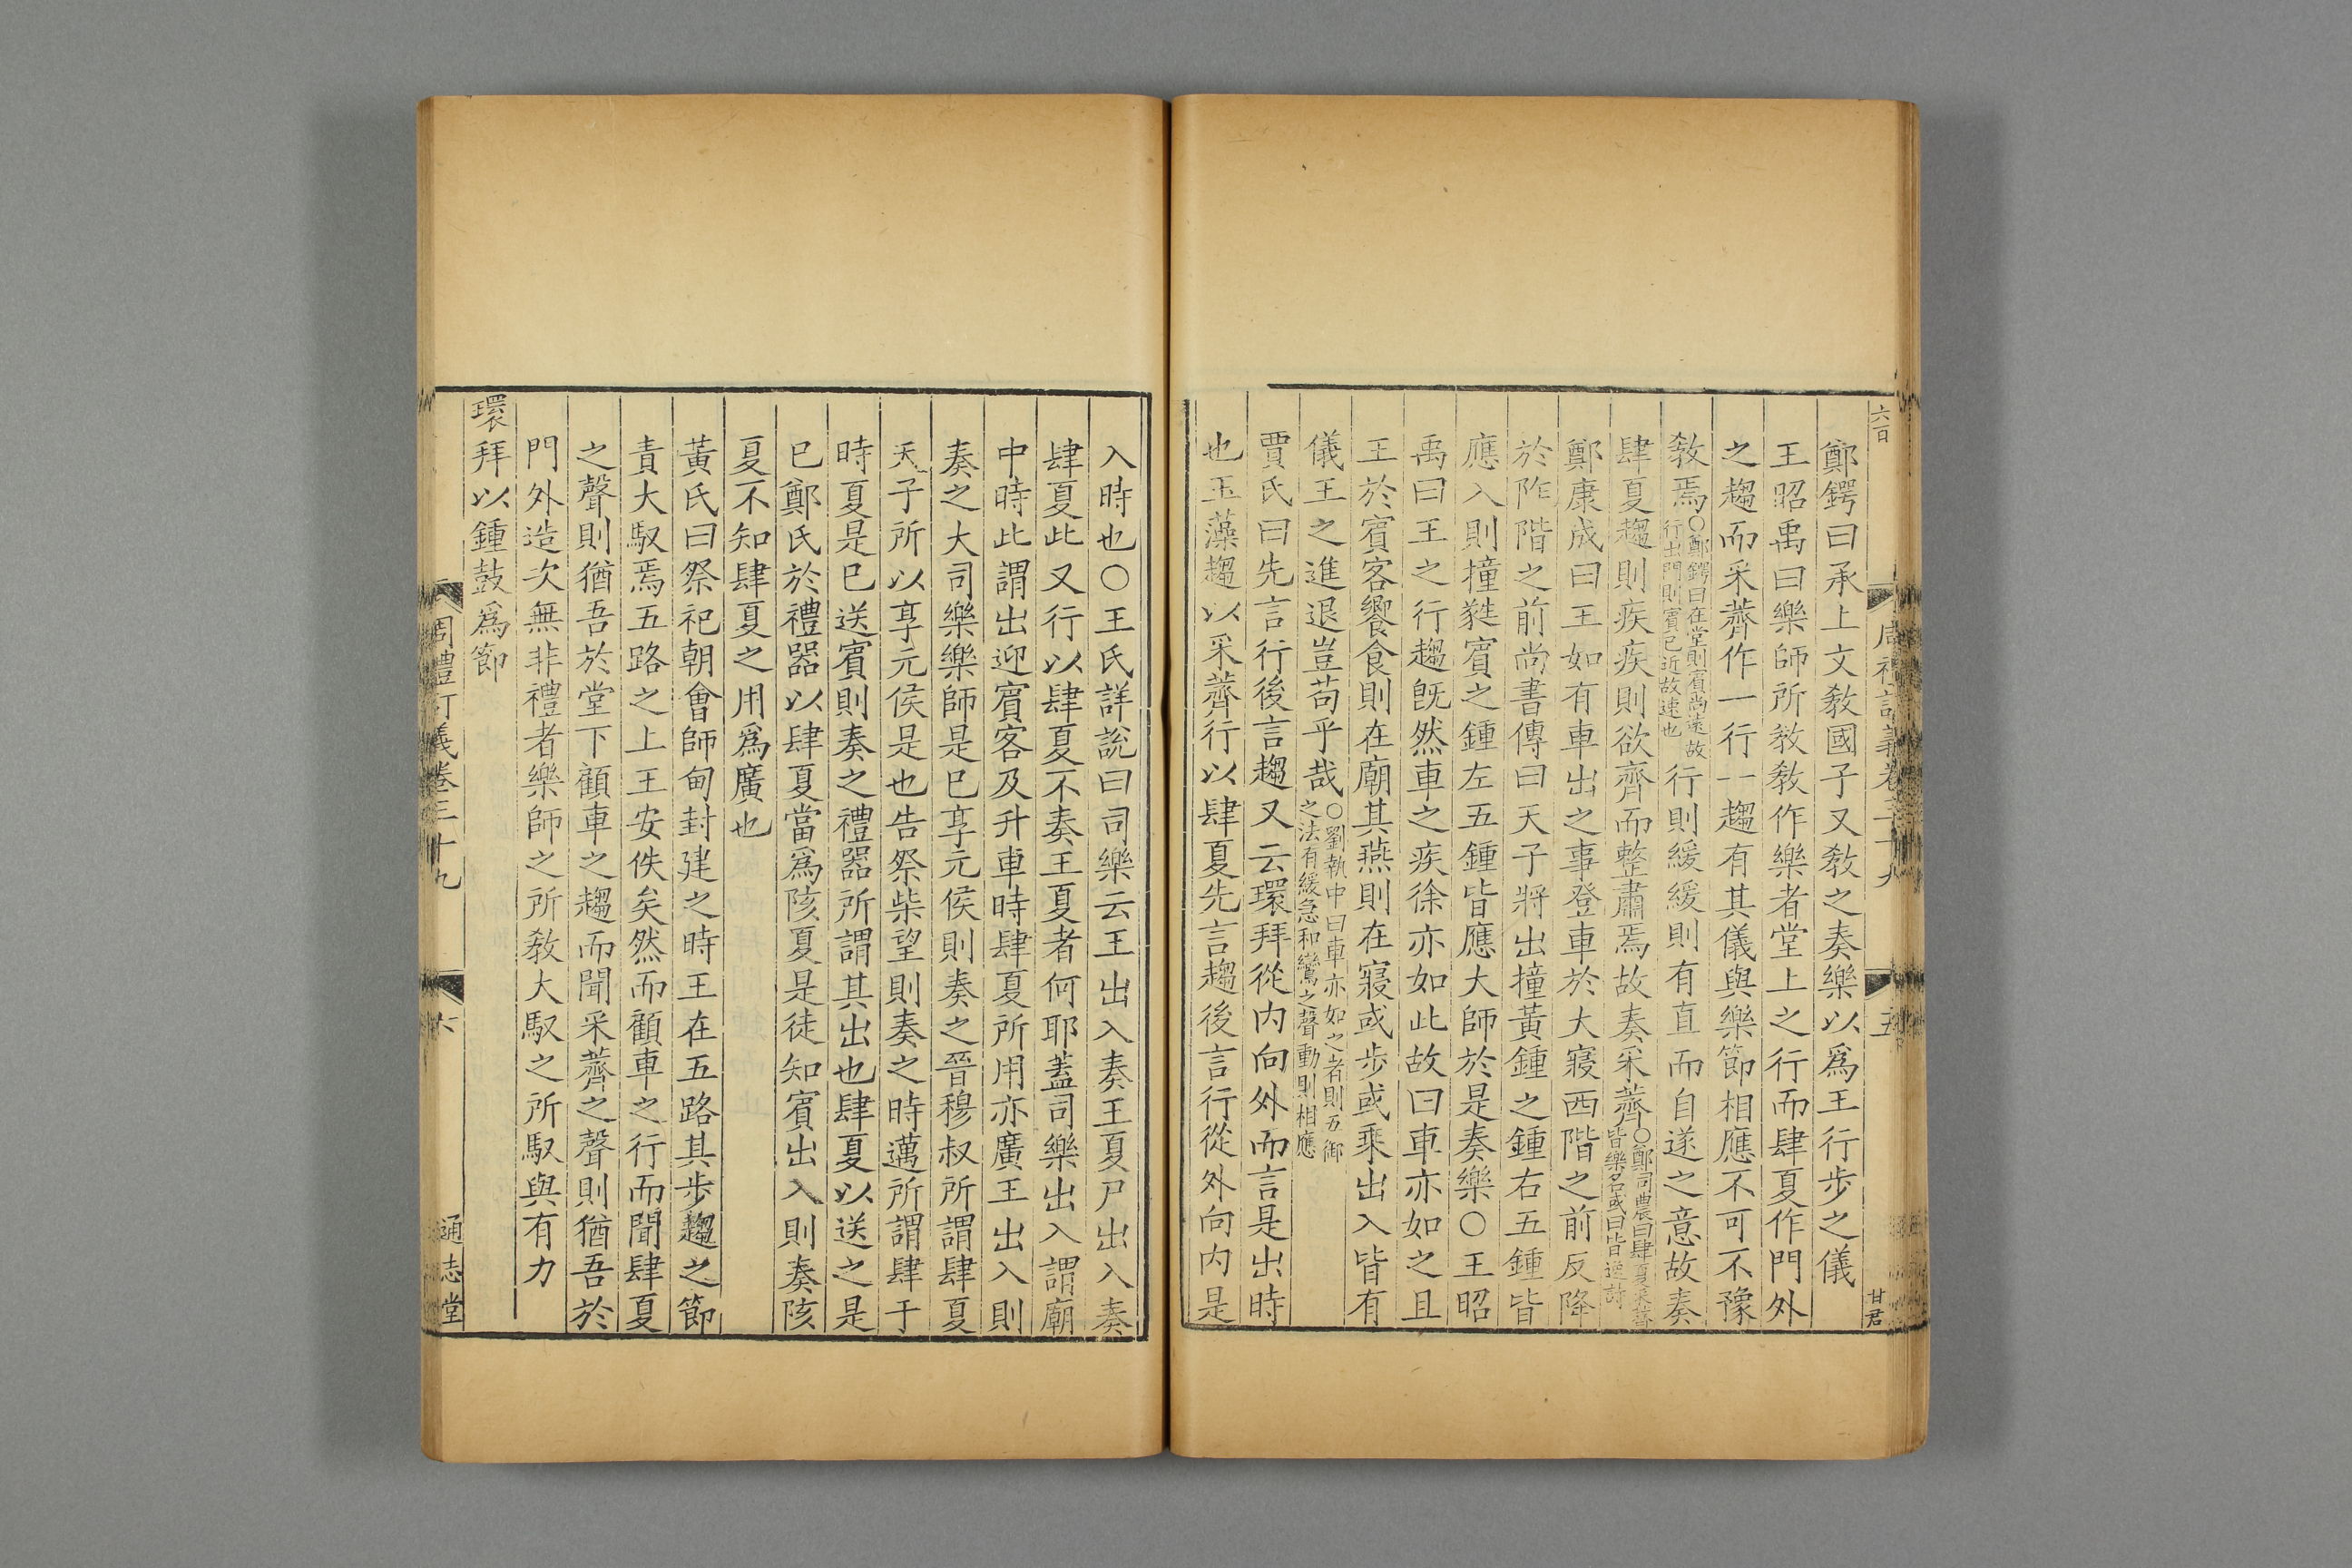 六百
周禮訂義卷三十九
五
甘君
鄭鍔曰承上文敎國子又敎之奏樂以爲王行步之儀
王昭禹曰樂師所敎敎作樂者堂上之行而肆夏作門外
之趨而采薺作一行一趨有其儀與樂節相應不可不豫
敎焉
○鄭鍔曰在堂則賓尚遠故
行出門則賓已近故速也
行則緩緩則有直而自遂之意故奏
肆夏趨則疾疾則欲齊而整肅焉故奏采薺
○鄭司農曰肆夏采薺
皆樂名或曰皆逸詩
鄭康成曰王如有車出之事登車於大寢西階之前反降
於阼階之前尚書傳曰天子將出撞黃鍾之鍾右五鍾皆
應入則撞蕤賓之鍾左五鍾皆應大師於是奏樂○王昭
禹曰王之行趨旣然車之疾徐亦如此故曰車亦如之且
王於賓客饗食則在廟其燕則在寢或步或乘出入皆有
儀王之進退豈苟乎哉
○劉執中曰車亦如之者則五御
之法有緩急和鸞之聲動則相應
賈氏曰先言行後言趨又云環拜從内向外而言是出時
也玉藻趨以采薺行以肆夏先言趨後言行從外向内是
入時也○王氏詳說曰司樂云王出入奏王夏尸出入奏
肆夏此又行以肆夏不奏王夏者何耶蓋司樂出入謂廟
中時此謂出迎賓客及升車時肆夏所用亦廣王出入則
奏之大司樂樂師是已享元侯則奏之晉穆叔所謂肆夏
天子所以享元侯是也告祭柴望則奏之時邁所謂肆于
時夏是已送賓則奏之禮器所謂其出也肆夏以送之是
已鄭氏於禮器以肆夏當爲陔夏是徒知賓出入則奏陔
夏不知肆夏之用爲廣也
黃氏曰祭祀朝會師甸封建之時王在五路其步趨之節
責大馭焉五路之上王安佚矣然而顧車之行而聞肆夏
之聲則猶吾於堂下顧車之趨而聞采薺之聲則猶吾於
門外造次無非禮者樂師之所敎大馭之所馭與有力
環拜以鍾鼓爲節
周禮訂義卷三十九
六
通志堂